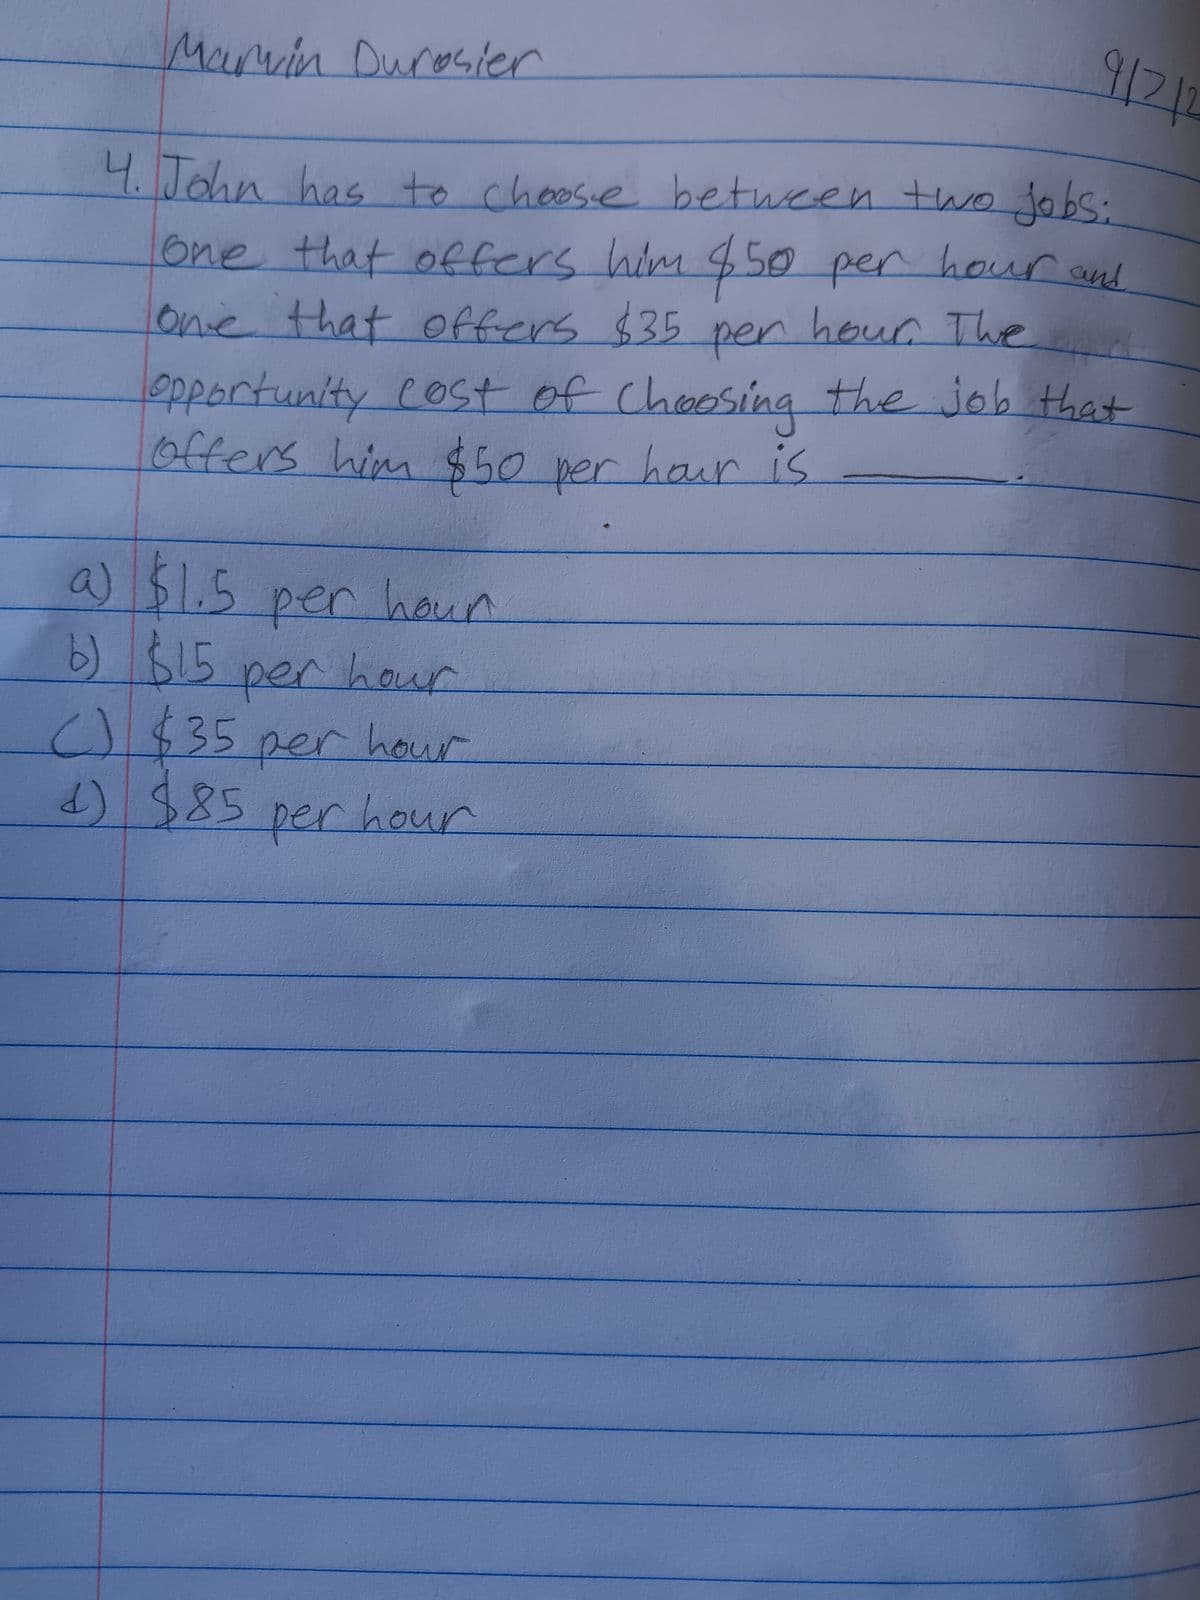 Marvin Durosier
9/2/2
4. John has to choose between two jobs:
one that offers him $50 per hour and
one that offers $35 per hour. The
opportunity cost of choosing the job that
offers him $50 per hour is ______.
a) $1.5 per hour
b) $15 per hour
c) $35 per hour
d) $85 per hour